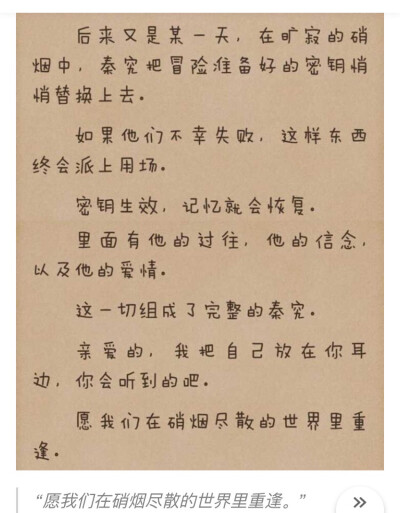 后来又是某一天，在旷寂的硝
烟中，秦究把冒险准备好的密钥悄
悄替换上去。
如果他们不幸失败，这样东西
终会派上用场。
密钥生效，记忆就会恢复。
里面有他的过往，他的信念，
以及他的爱情。
这一切组成了完整的秦究。
亲爱的，我把自己放在你耳
边，你会听到的吧。
愿我们在硝烟尽散的世界里重
逢。
“愿我们在硝烟尽散的世界里重逢。”